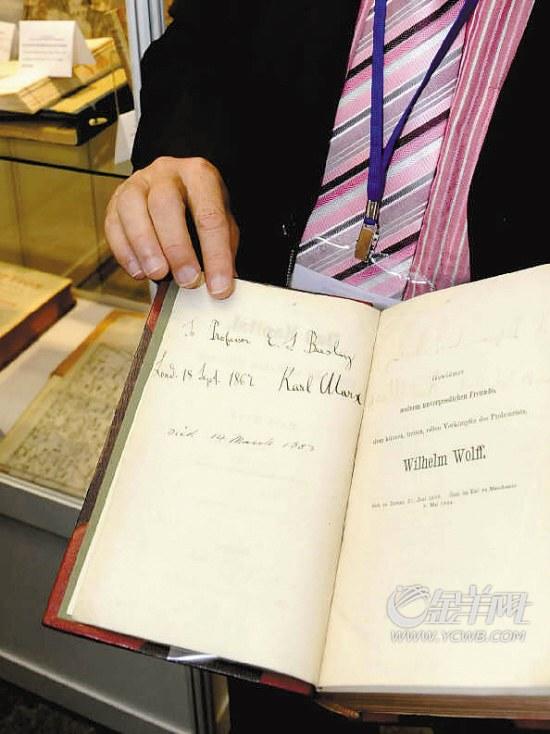 To Professor E S Beesly
Lond. 18 Sept. 1867 Karl Marx
Died 14 March 1883
Gewidmet
meinem unvergesslichen Freunde,
dem kühnen, treuen, edlen Vorkämpfer des Proletariats,
Wilhelm Wolff.
Geb. zu Tarnau, 21. Juni 1809. Gest. im Exil zu Manchester
9. Mai 1864.
金羊网
WWW.YCWB.COM